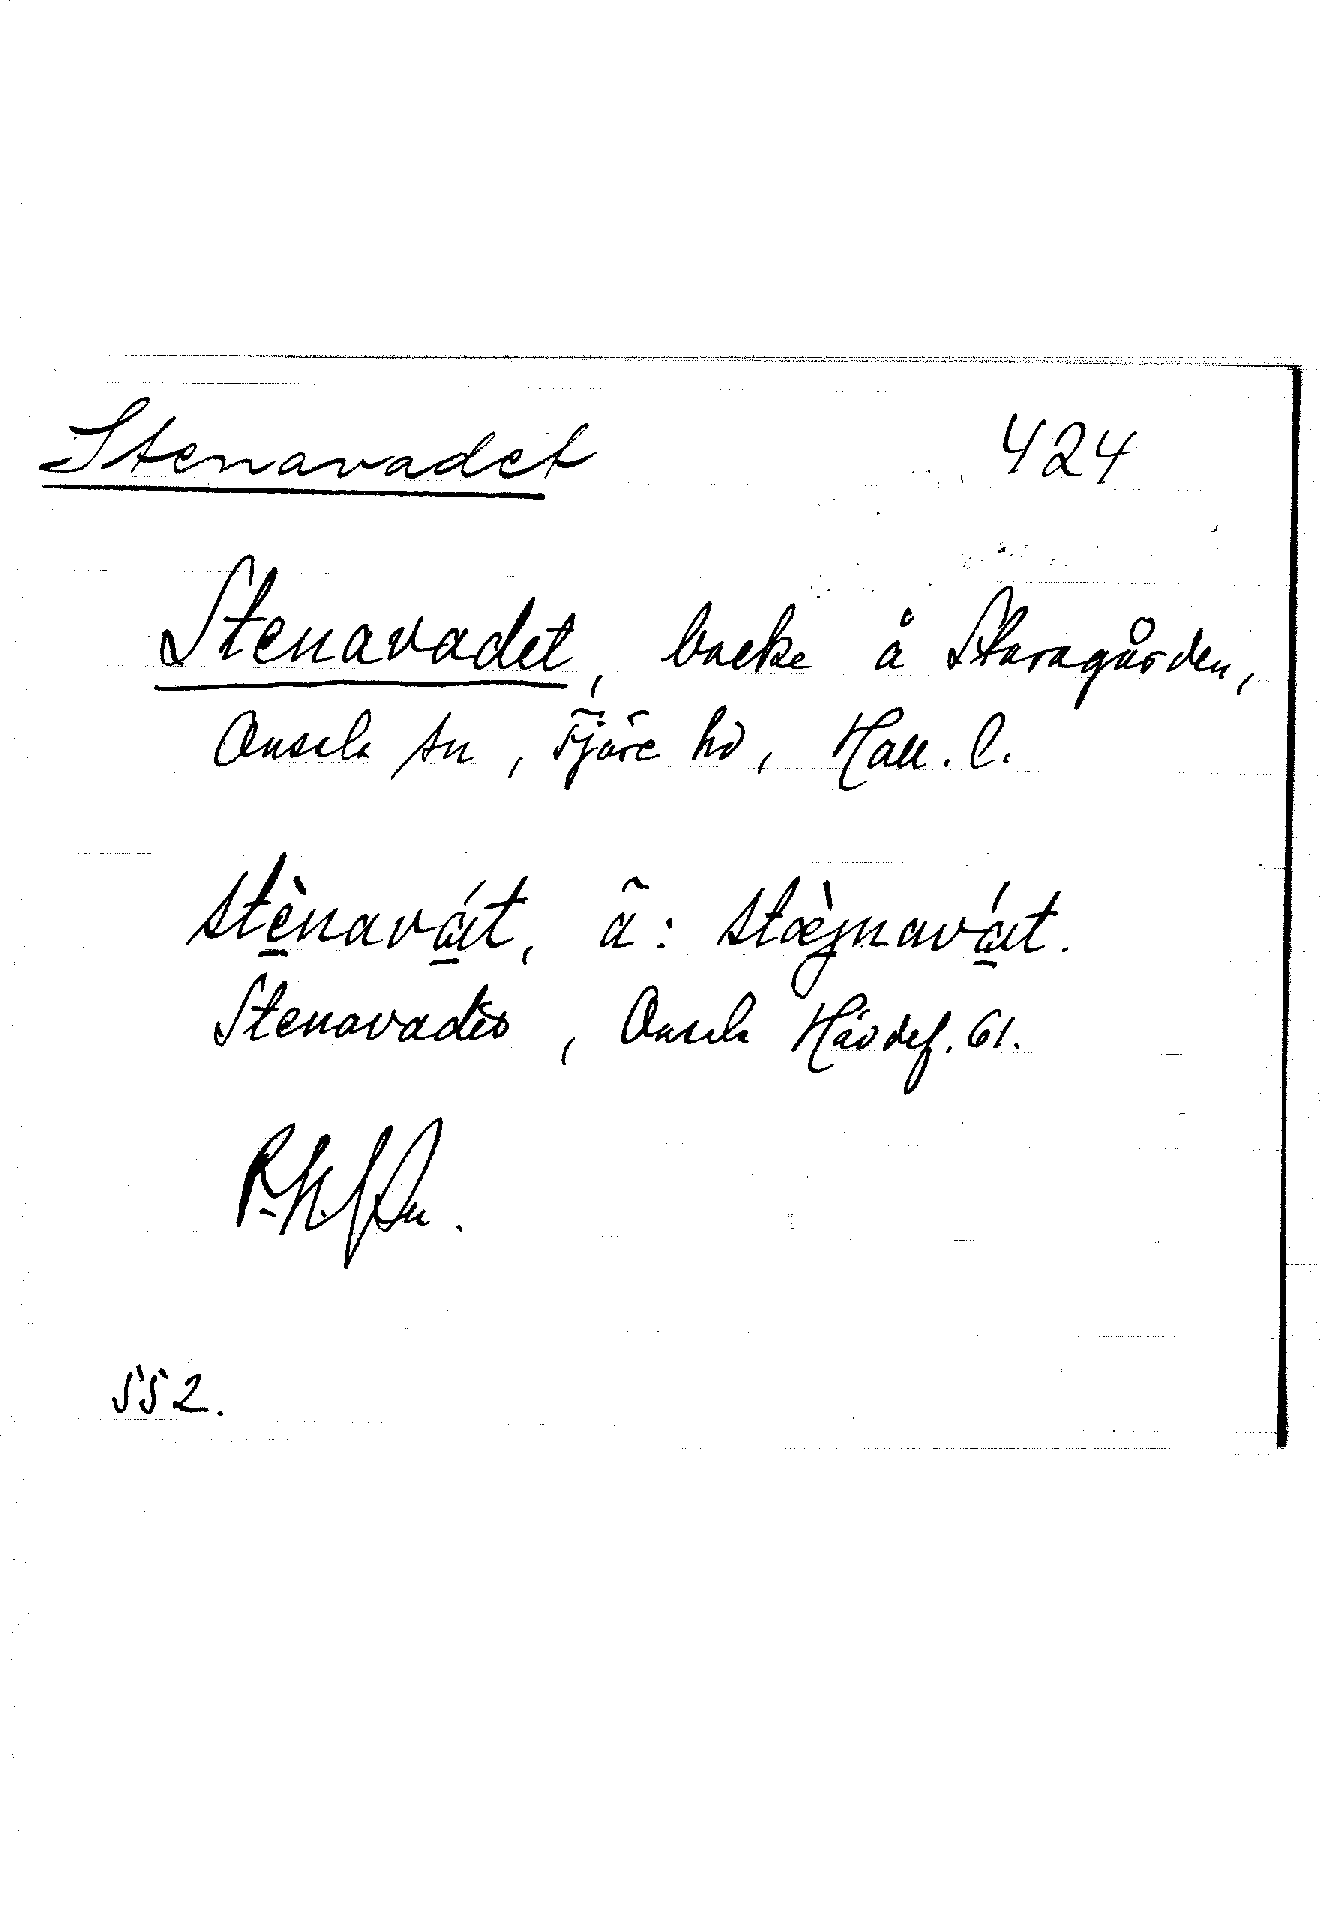 Stenavadet 424
Stenavadet, backe å Staragården,
Onsala sn, Fjäre hd, Hall. l.
stènavát, ä: stæ̀jnavát.
Stenavadet, Onsala Hävdef. 61.
552.